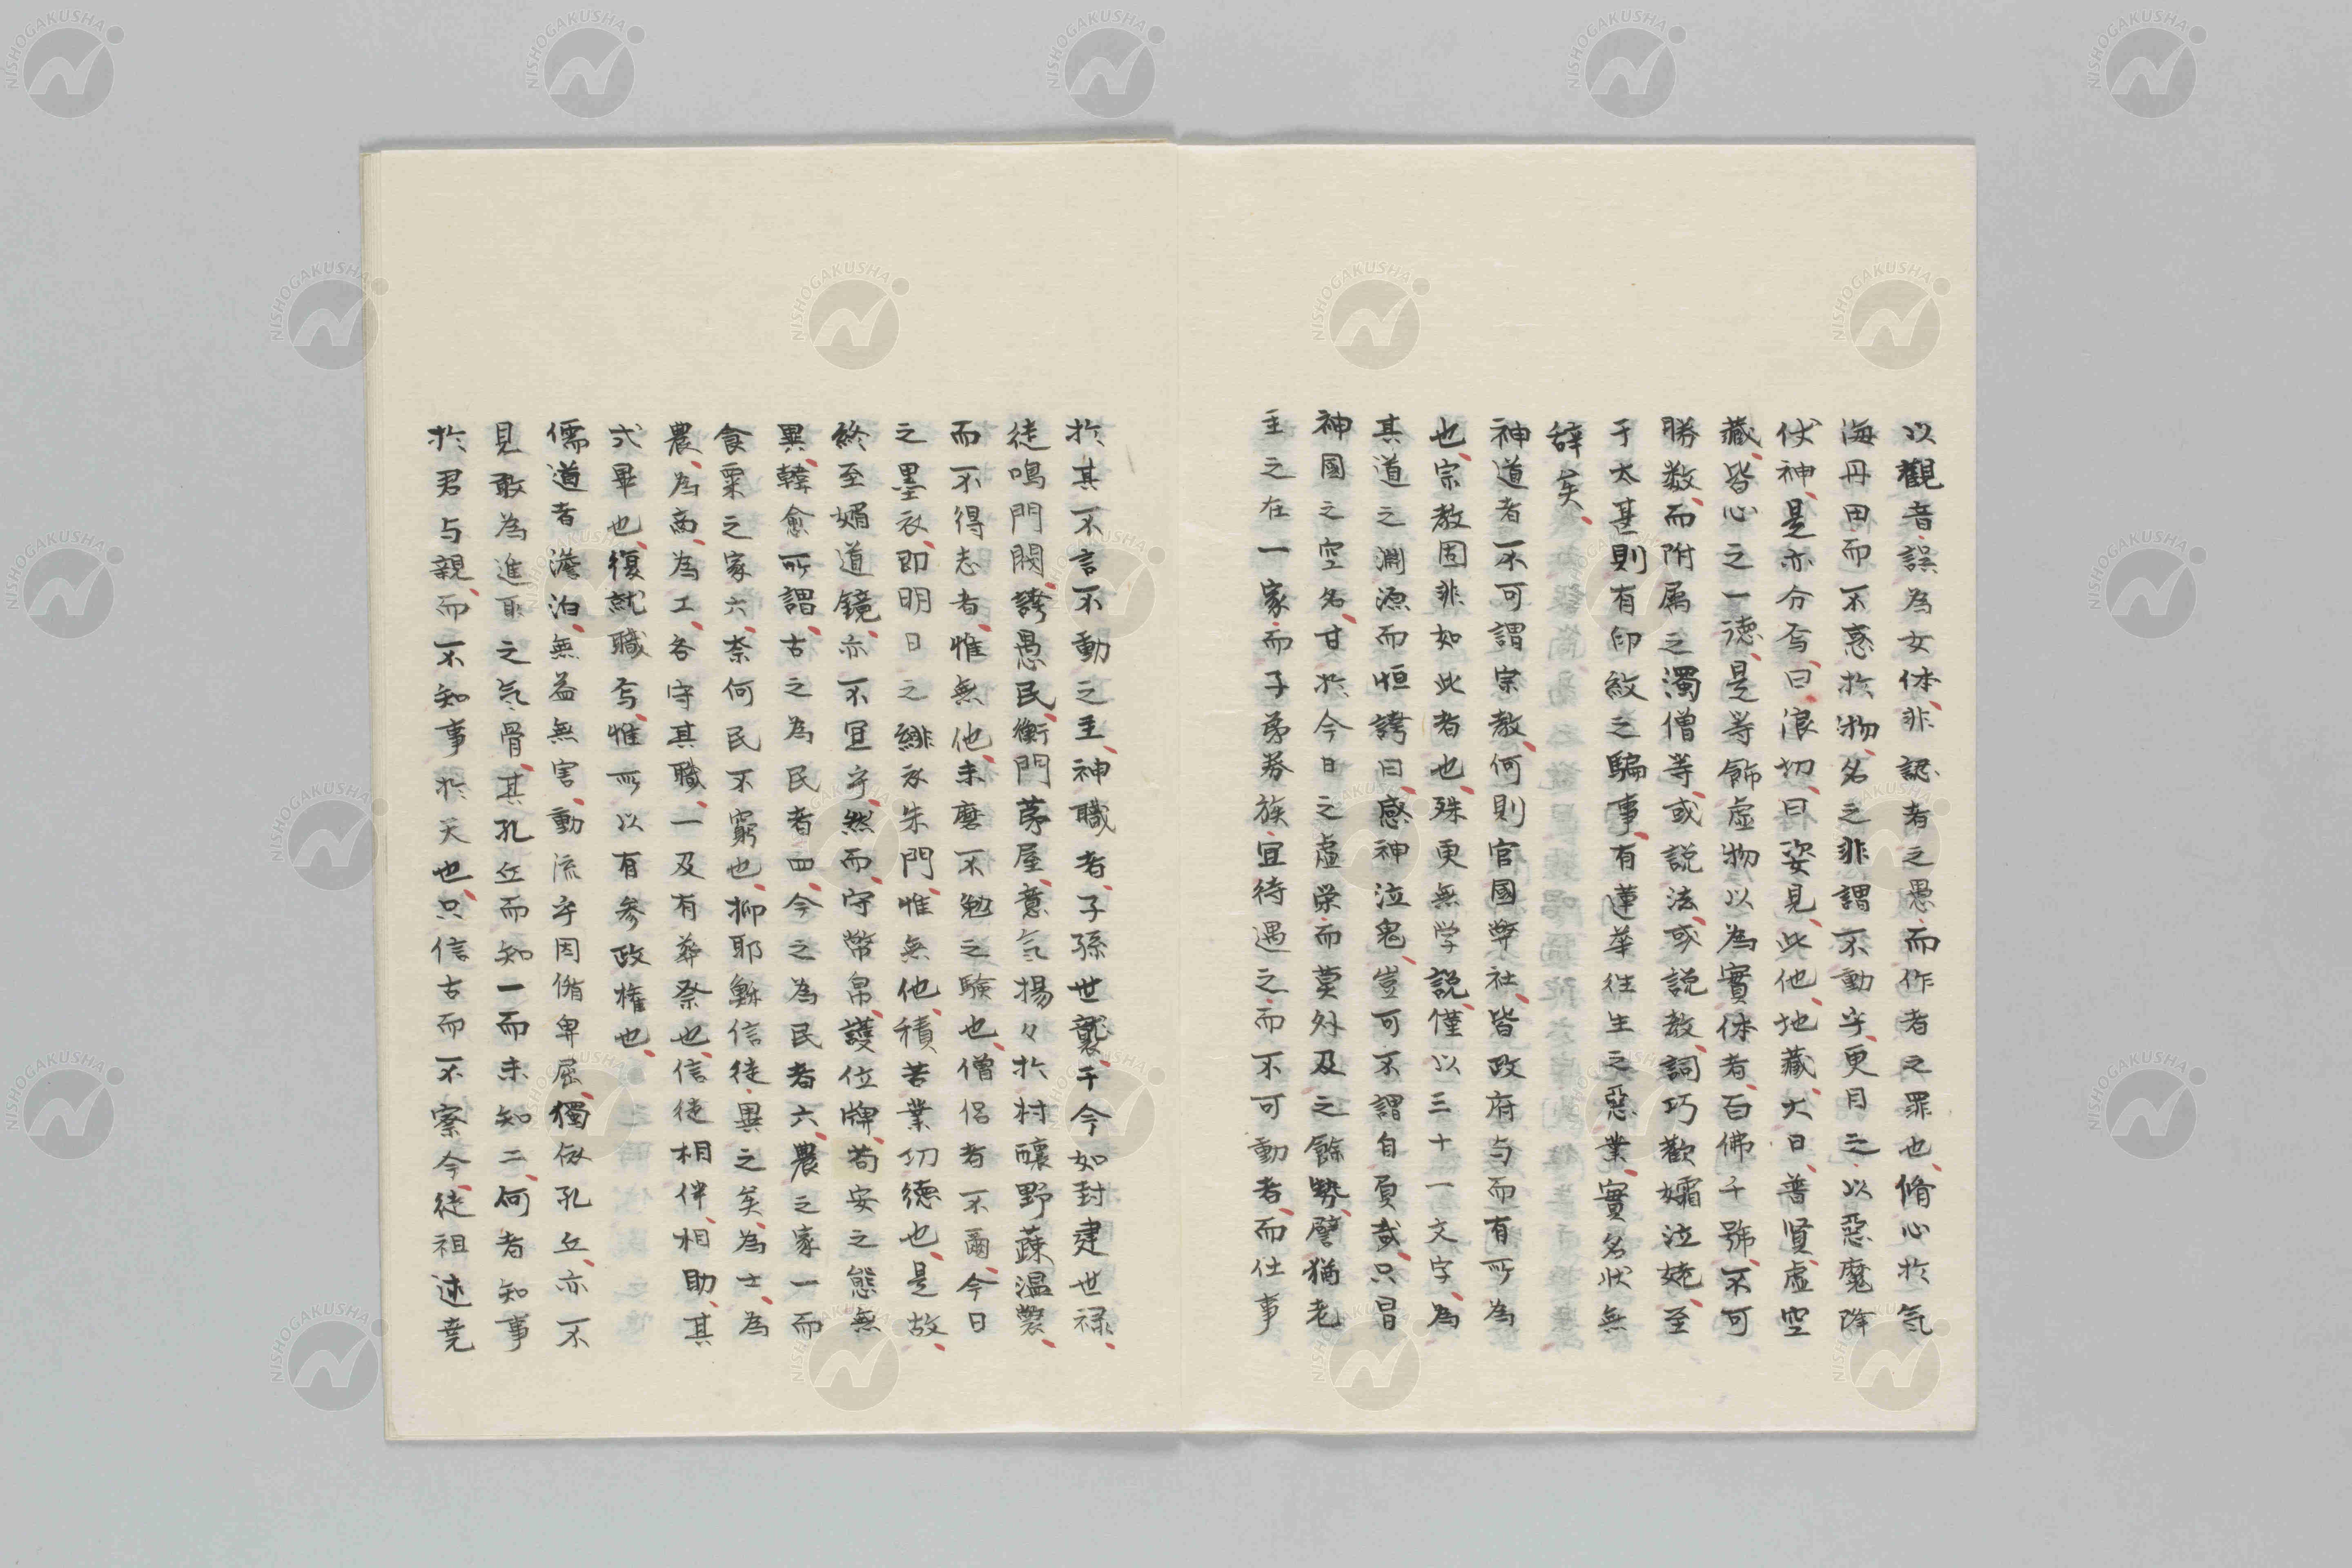 以觀音誤為女体、非認者之愚、而作者之罪也、脩心於気
海丹田而不惑於物、名之非謂不動乎、更目之以惡魔降
伏神、是亦分写、曰浪切、曰姿見、此他、地藏、大日、普賢、虛空
藏、皆心之一德、是等飾虛物以為實体者、百佛千號、不可
勝数、而附屬之濁僧等、或説法、或説教、詞巧歡孀泣姥、至
于太甚則有印紋之騙事、有蓮華往生之惡業、實名状無
辞矣、
神道者不可謂宗教、何則官國幣社、皆政府与而有所為
也、宗教固非如此者也、殊更無学説、僅以三十一文字、為
其道之淵源而恒誇曰、感神泣鬼、豈可不謂自負哉、只冒
神國之空名、甘於今日之虛栄、而莫外及之餘勢、譬猶老
主之在一家、而子弟眷族、宜待遇之、而不可動者、而仕事
於其不言不動之主、神職者、子孫世襲、于今如封建世禄、
徒鳴門閥、誇愚民、衡門茅屋、意気揚々於村釀野蔬温襲、
而不得志者、惟無他、未磨不勉之驗也、僧侶者不爾、今日
之墨衣、即明日之緋衣朱門、惟無他、積苦業功德也、是故、
終至媚道鏡、亦不宜乎、然而、守幣帛、護位牌、苟安之態無
異、韓愈所謂、古之為民者四、今之為民者六、農之家一而
食粟之家六、奈何民不窮也、抑耶穌信徒、異之矣、為士、為
農、為商、為工、各守其職、一及有葬祭也、信徒相伴、相助、其
式畢也、復就職写、惟所以有参政權也、
儒道者澹泊、無益無害、動流乎因脩卑屈、獨倣孔丘、亦不
見敢為進取之気骨、其孔丘而知一而未知二、何者知事
於君与親、而不知事於天也、只信古而不察今、徒祖述堯